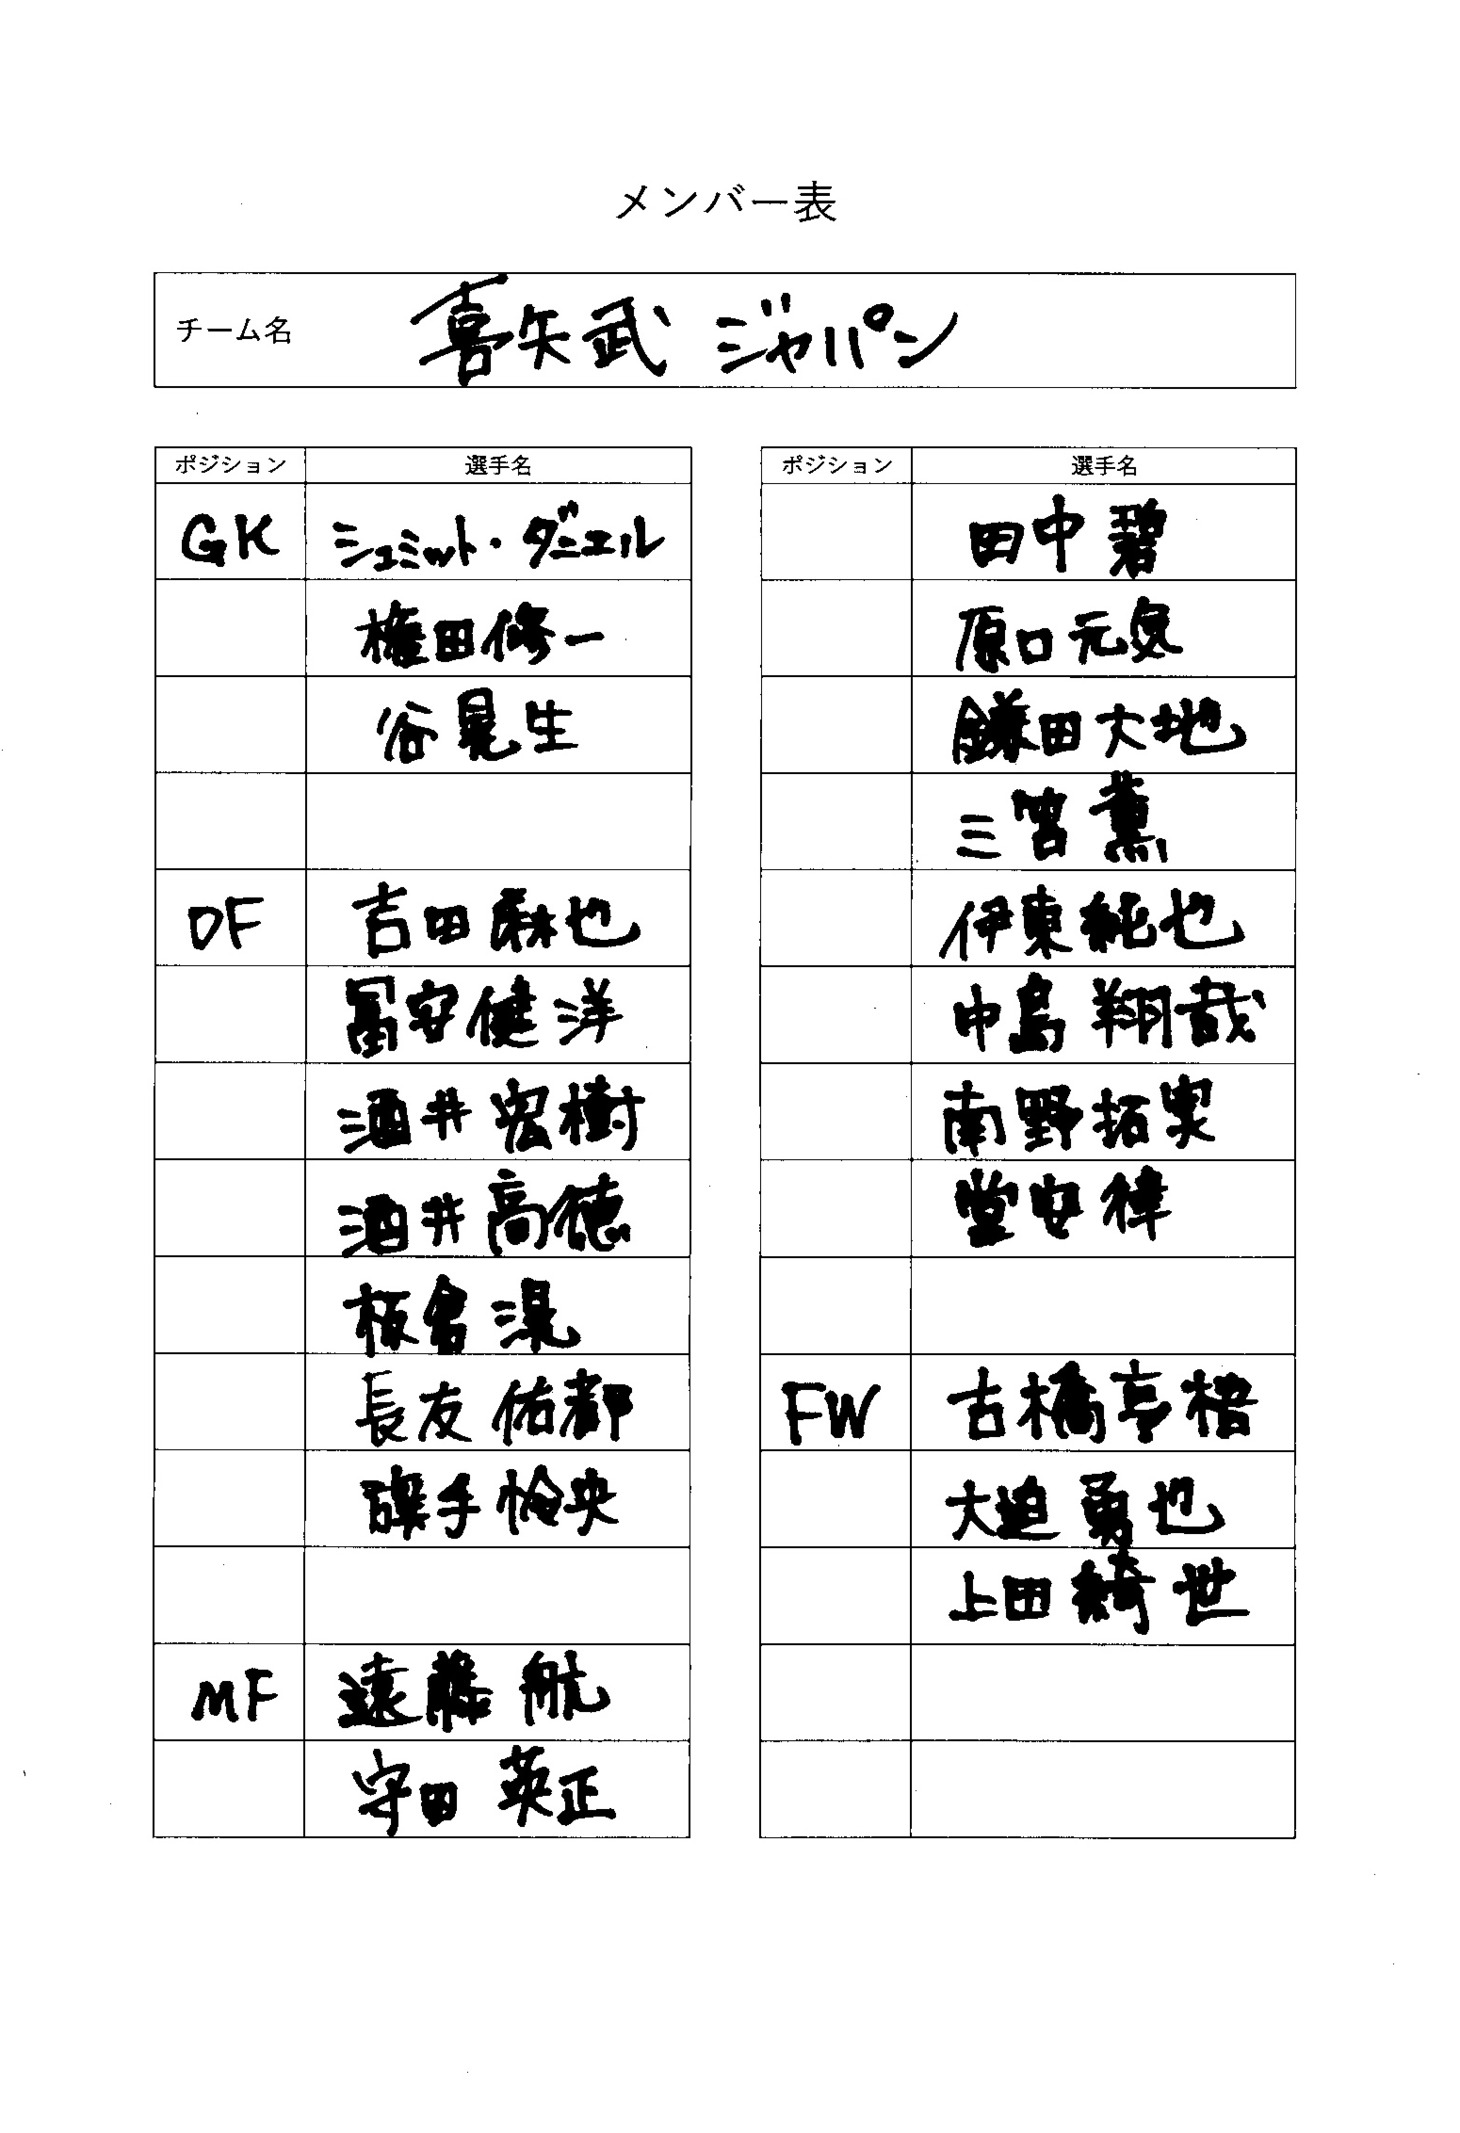 メンバー表
チーム名 喜矢武 ジャパン
ポジション 選手名
GK シュミット・ダニエル
権田修一
谷晃生
DF 吉田麻也
冨安健洋
酒井宏樹
酒井高徳
板倉滉
長友佑都
旗手怜央
MF 遠藤航
守田英正
ポジション 選手名
田中碧
原口元気
鎌田大地
三笘薫
伊東純也
中島翔哉
南野拓実
堂安律
FW 古橋亨梧
大迫勇也
上田綺世